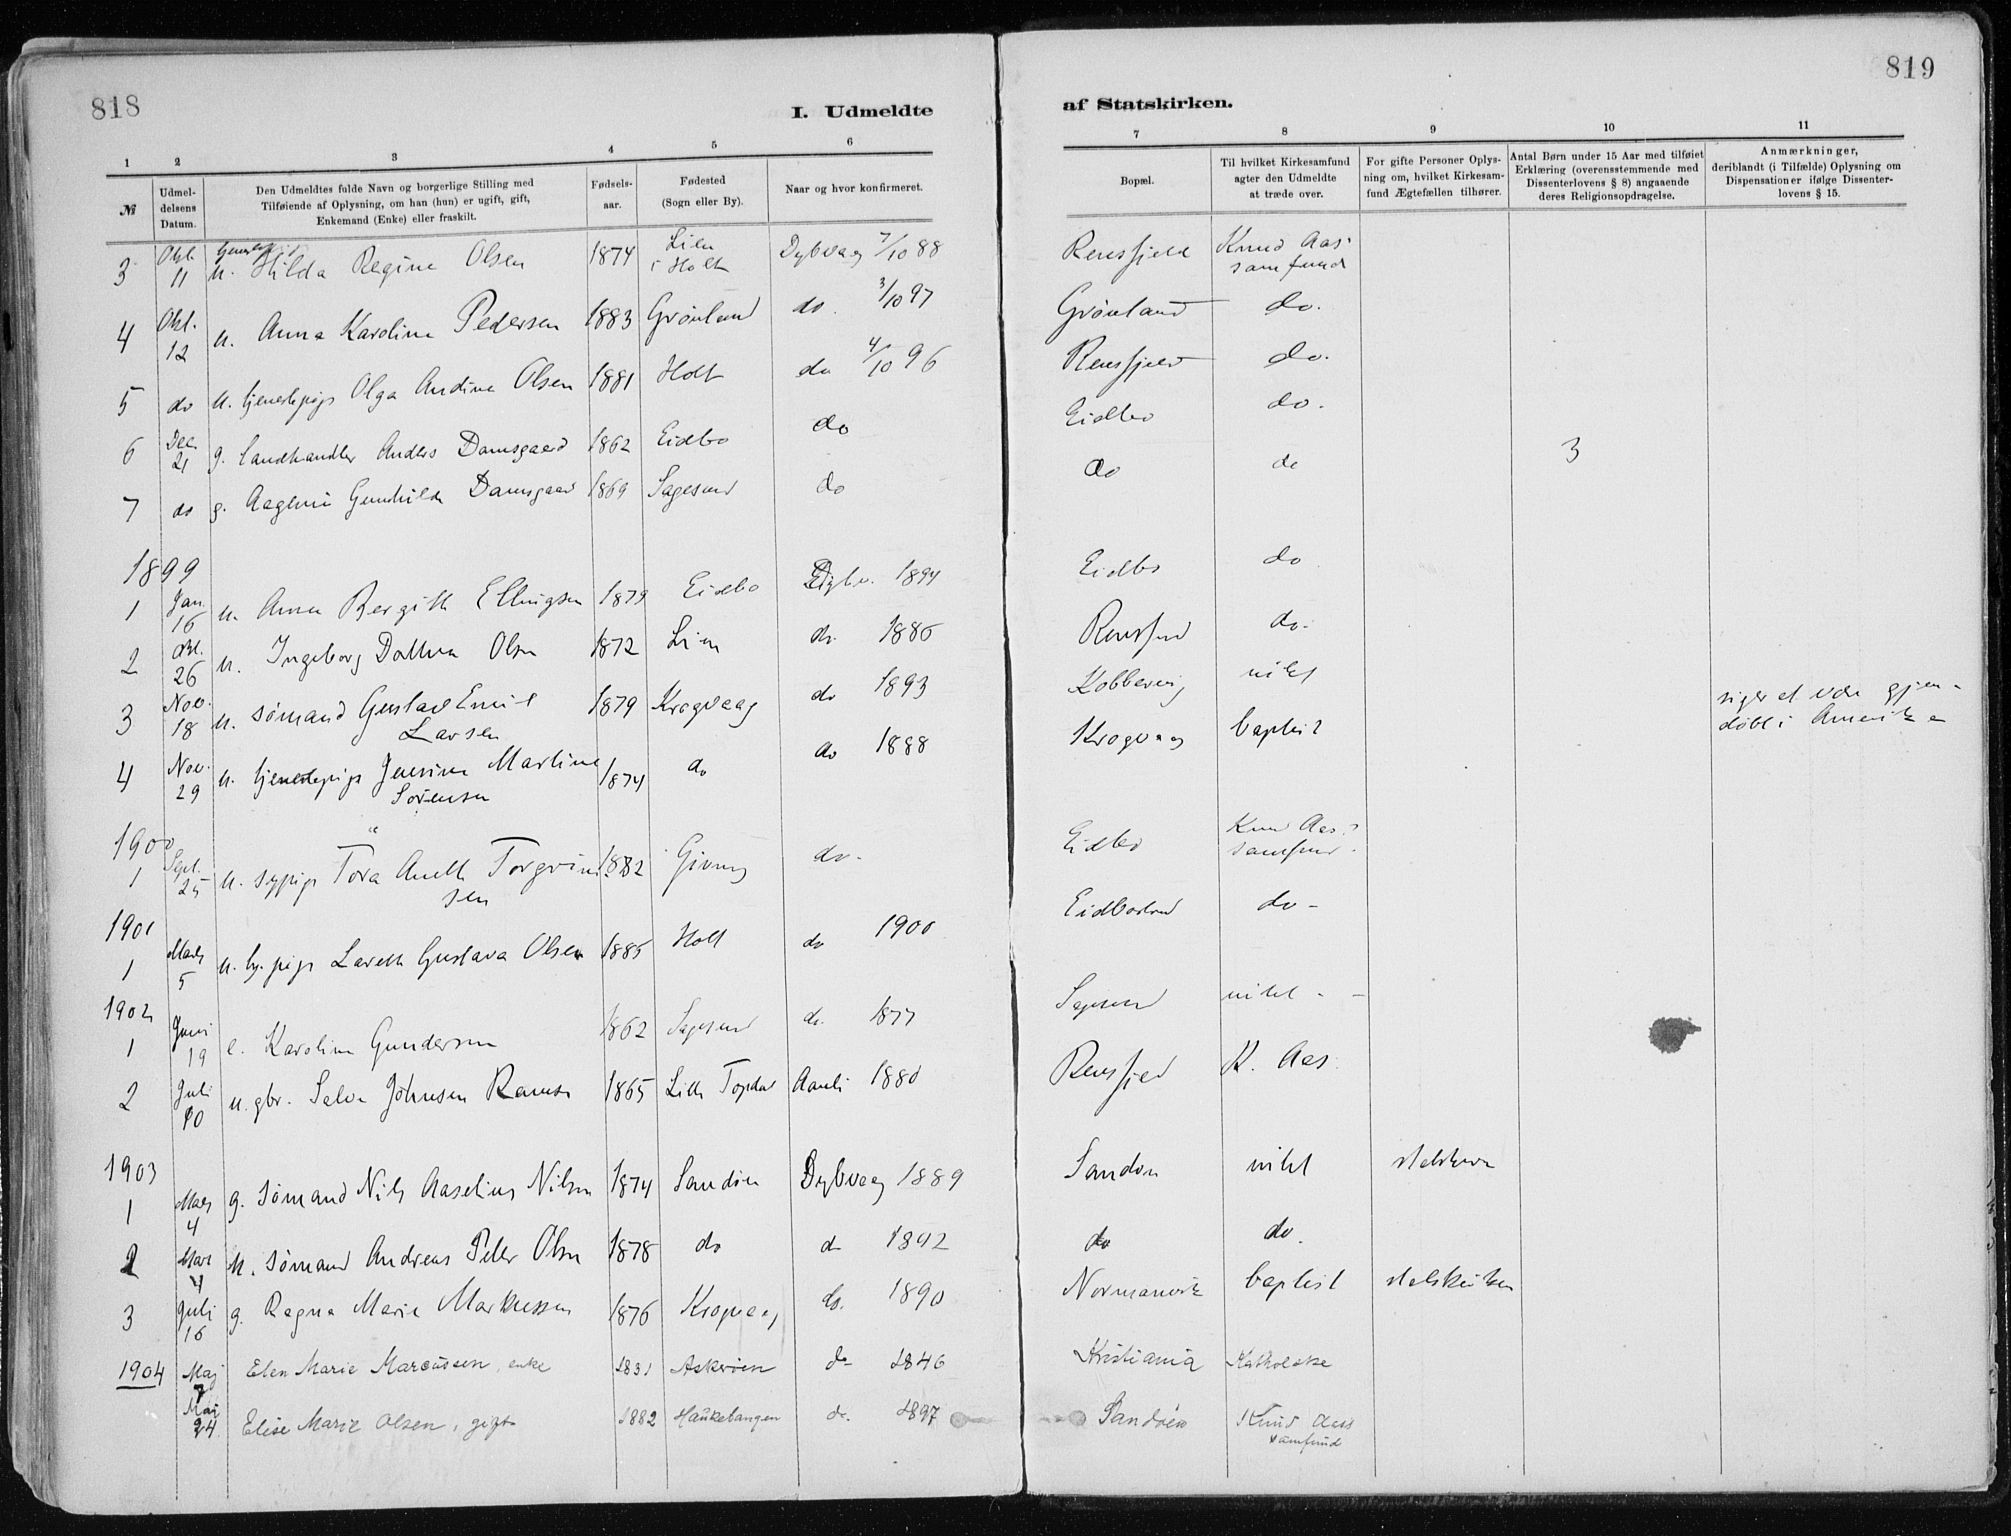 818
I. Udmeldte
af Statskirken.
819
1 2 3 4 5 6 7 8 9 10 11
№
Udmel-
delsens
Datum.
Den Udmeldtes fulde Navn og borgerlige Stilling med
Tilføiende af Oplysning, om han (hun) er ugift, gift,
Enkemand (Enke) eller fraskilt.
Fødsels-
aar.
Fødested
(Sogn eller By).
Naar og hvor konfirmeret.
Bopæl.
Til hvilket Kirkesamfund
agter den Udmeldte
at træde over.
For gifte Personer Oplys-
ning om, hvilket Kirkesam-
fund Ægtefællen tilhører.
Antal Børn under 15 Aar med tilføiet
Erklæring (overensstemmende med
Dissenterlovens § 8) angaaende
deres Religionsopdragelse.
Anmærkninger,
deriblandt (i Tilfælde) Oplysning om
Dispensationer ifølge Dissenter-
lovens § 15.
3 Okt. 11 u. Hilda Regine Olsen 1874 Lien i Holt Dybvaag 7/10 88 Rensfjeld Knud Aas' samfund
4 Okt. 12 u. Anna Karoline Pedersen 1883 Grönland do. 3/10 97 Grönland do.
5 do u. tjenestepige Olga Andine Olsen 1881 Holt do 4/10 96 Rensfjeld do.
6 Dec. 21 g. Landhandler Anders Damsgaard 1862 Eidbo do Eidbo do.
7 do g. Gunhilda Damsgaard 1869 Sagesund do do do 3
1899
1 Jan. 16 u. Anna Bergith Ellingsen 1879 Eidbo Dybv. 1894 Eidbo do
2 Okt. 26 u. Ingeborg Olsen 1872 Lien do. 1886 Rensfjed do.
3 Nov. 18 u. sömand Gustav Emil Larsen 1879 Krogvaag do 1893 Kobbervig intet siger at være gjendöbt i Amerika
4 Nov. 29 u. tjenestepige Jensine Martine Sörensen 1874 do do 1888 Krogvaag baptist
1900
1 Sept. 25 u. sypige Tora Aneth Torgrimsen 1882 Giving do. Eidbo Knud Aas' samfund.
1901
1 Marts 5 u. pige Gustava Olsen 1885 Holt do 1900 do
1902
1 Juni 19 e. Karoline Gundersen 1862 Sagesund do. 1877 Sagesund intet
2 Juli 10 u. gbr. Johnsen 1865 Lille Topdal Aamli 1880 Rensfjed K. Aas.
1903
1 Marts 4 g. sömand Nils Aaselius Nilsen 1874 Sandöen Dybvaag 1889 Sandöen intet statskirken
2 Mars 4 u. sömand Andreas Peter Olsen 1878 do do 1892 do do.
3 Juli 16 g. Ragna Marie Markussen 1876 Krogvaag do. 1890 Normanvik baptist statskirken
1904 Maj 7 Elen Marie Marcussen, enke 1831 Askeröen do 1846 Kristiania Katholske
Maj 24. Elise Marie Olsen, gift 1882 Haukebangen do. 1897 Sandöen Knud Aass samfund